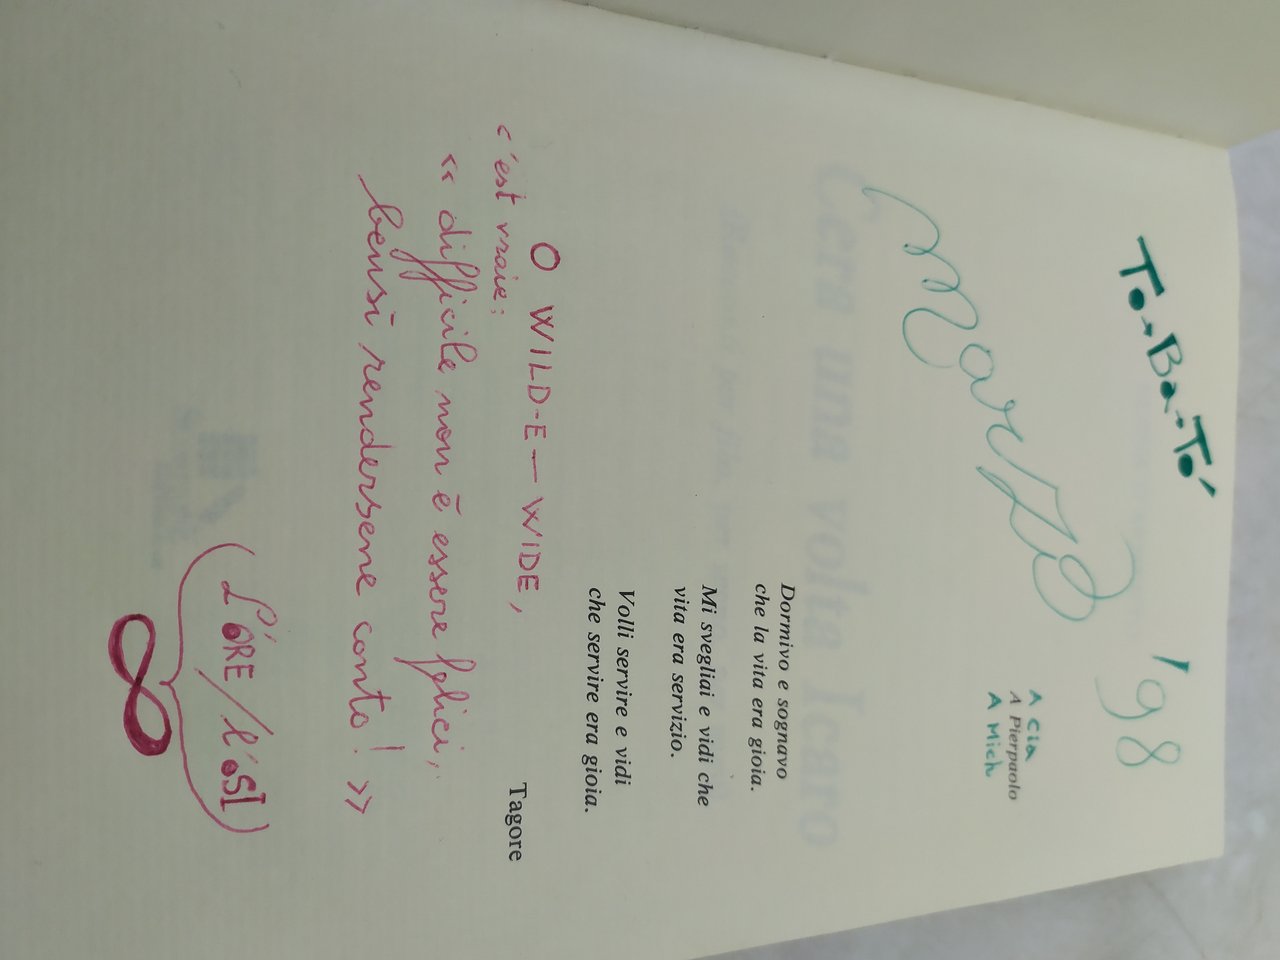 To.Ba.Tó
Marzo '98
A Cia
A Pierpaolo
A Mich
Dormivo e sognavo
che la vita era gioia.
Mi svegliai e vidi che
vita era servizio.
Volli servire e vidi
che servire era gioia.
Tagore
O WILD-E — WIDE,
c'est vraie:
« difficile non è essere felici,
bensì rendersene conto! »
(L'ORE/l'OSI)
∞
C'era una volta Icaro